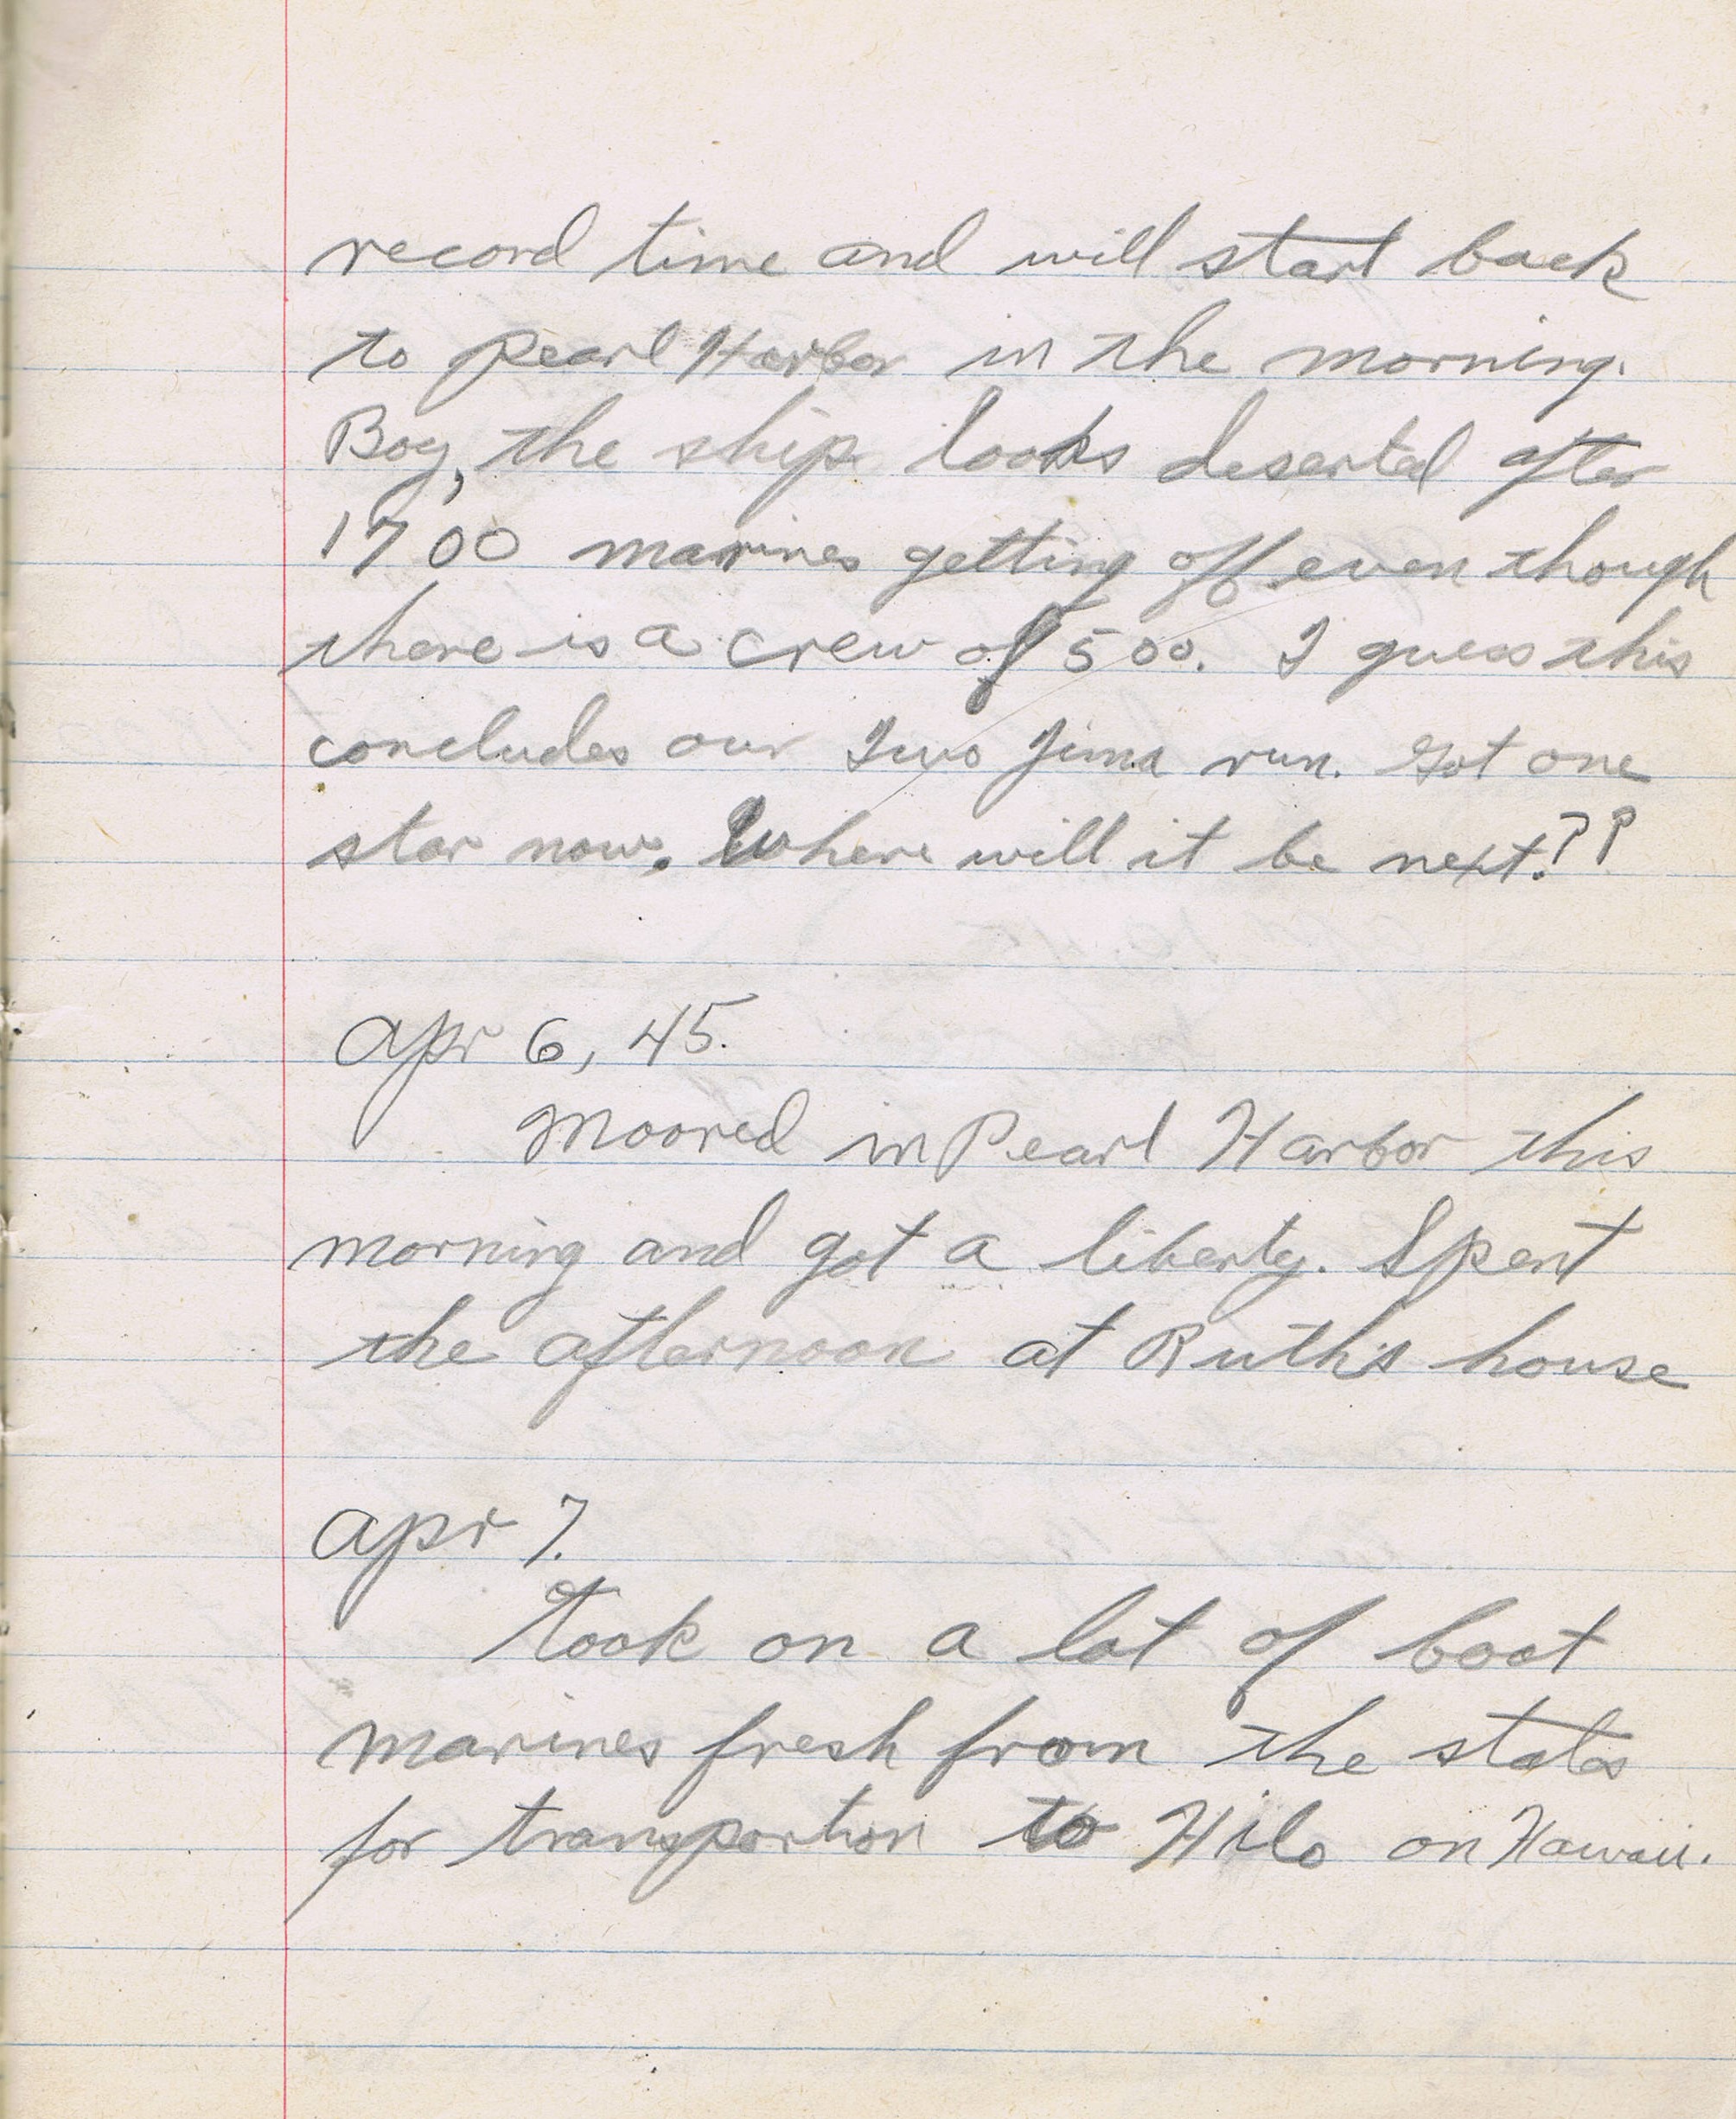 record time and will start back
to Pearl Harbor in the morning.
Boy, the ship looks deserted after
1700 marines getting off even though
there is a crew of 500. I guess this
concludes our Iwo Jima run. Got one
star now. Where will it be next???
Apr 6, 45.
Moored in Pearl Harbor this
morning and got a liberty. Spent
the afternoon at Ruth's house
Apr 7.
Took on a lot of boot
marines fresh from the states
for transportion to Hilo on Hawaii.